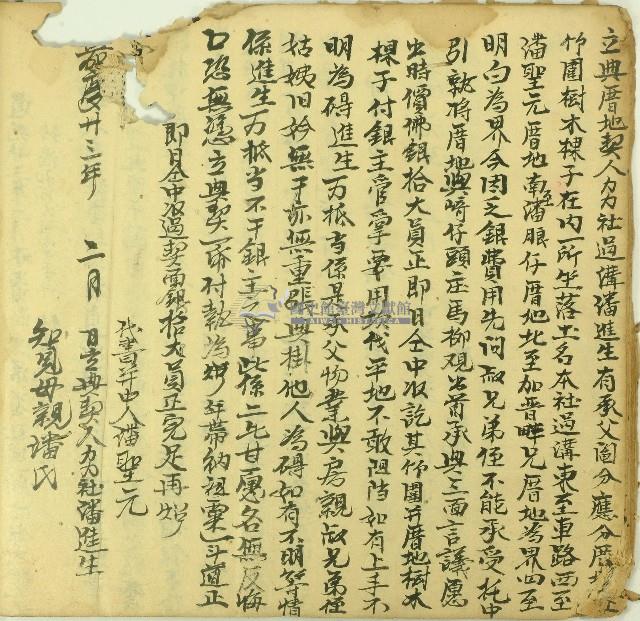 立典厝地契人芴芴社過溝潘進生有承父鬮分應分厝地
竹圍樹木棵子在內一所坐落土名本社過溝東至車路西至
潘聖元厝地南至潘眼仔厝地北至加晋曄兄厝地為界四至
明白為界今因乏銀費用先問叔兄弟侄不能承受托中
引就將厝地典與崎仔頭庄馬柳观出首承典三面言議愿
出時價佛銀拾大員正即日仝中收訖其竹圍并厝地樹木
棵子付銀主管掌要用伐平地不敢阻挡如有上手不
明為碍進生一力抵当係是承父物業與房親叔兄弟侄
姑姨旧妗無干亦無重張典掛他人為碍如有不明等情
係進生一力抵当不干銀主之事此係二比甘愿各無反悔
口恐無憑立典契一帋付執為炤并帶納祖粟一斗道正
即日仝中收過契面銀拾大員正完足再炤
代書并中人潘聖元
嘉慶廿三年 二月 日立典契人芴芴社潘進生
知見母親潘氏
國史館臺灣文獻館
TAIWAN HISTORICA